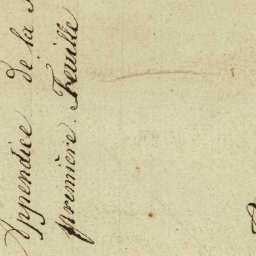 Appendice de la
première Feuille